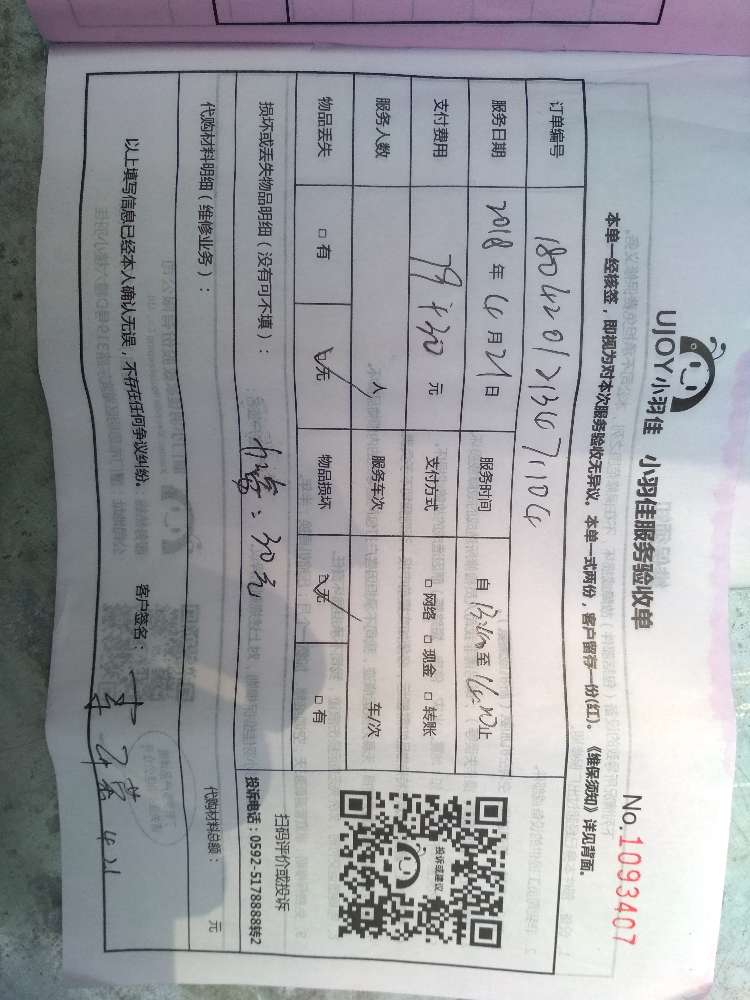 UJOY小羽佳 小羽佳服务验收单
No.1093407
本单一经核签，即视为对本次服务验收无异议。本单一式两份，客户留存一份(红)。《维保须知》详见背面。
订单编号
服务日期 2018年4月21日 服务时间 自 至 止
支付费用 79+30 元 支付方式 □网络 □现金 □转账
服务人数 人 服务车次 车/次
物品丢失 □有 ☑无 物品损坏 ☑无 □有
损坏或丢失物品明细（没有可不填）： 30元
投诉或建议
扫码评价或投诉
投诉电话：0592-5178888转2
代购材料明细（维修业务）： 代购材料总额： 元
以上填写信息已经本人确认无误，不存在任何争议纠纷。 客户签名： 4.21